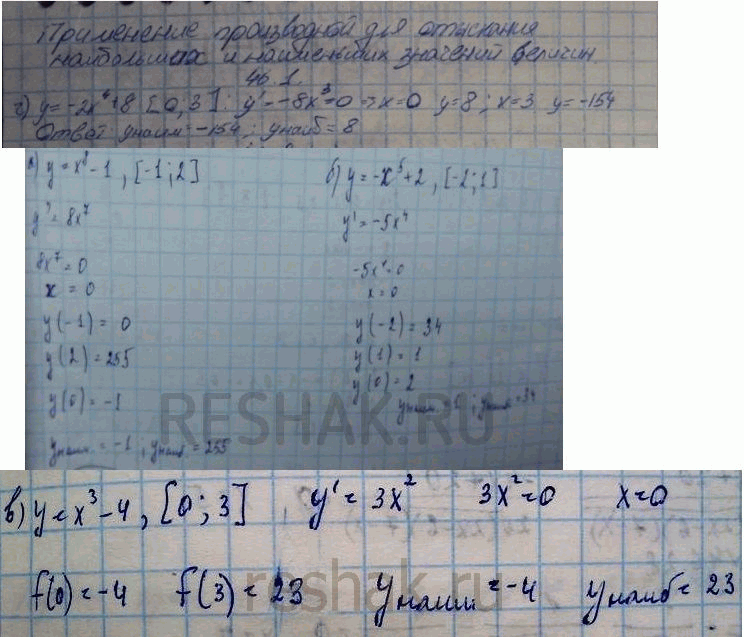 Применение производной для отыскания
наибольших и наименьших значений величин.
46.1.
г) y=-2x⁴+8 [0;3]: y'=-8x³=0 => x=0 y=8; x=3 y=-154
Ответ yнаим=-154; yнаиб=8
а) y=x⁸-1, [-1;2]
y'=8x⁷
8x⁷=0
x=0
y(-1)=0
y(2)=255
y(0)=-1
yнаим.=-1, yнаиб=255
б) y=-x⁵+2, [-2;1]
y'=-5x⁴
-5x⁴=0
x=0
y(-2)=34
y(1)=1
y(0)=2
yнаим. ; yнаиб=34
RESHAK.RU
в) y=x³-4, [0;3] y'=3x² 3x²=0 x=0
f(0)=-4 f(3)=23 yнаим=-4 yнаиб=23
reshak.ru